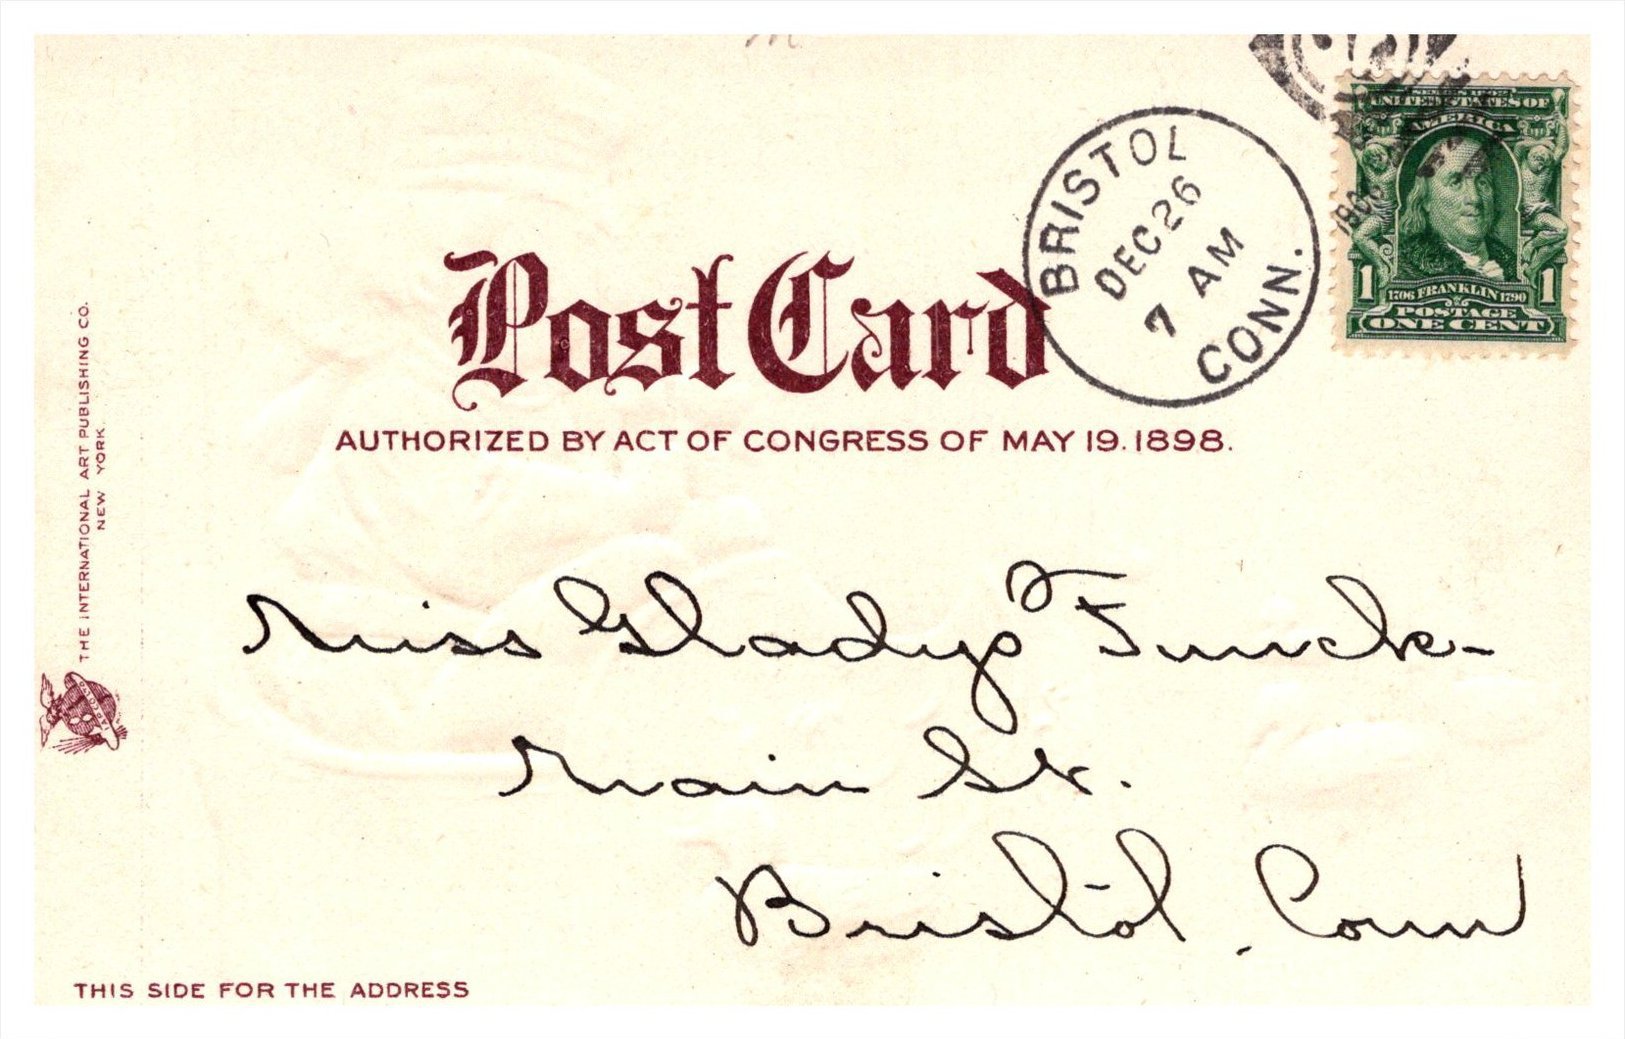 UNITED STATES OF
AMERICA
1 1
1706 FRANKLIN 1790
POSTAGE
ONE CENT
BRISTOL
DEC 26
7 AM
CONN.
Post Card
AUTHORIZED BY ACT OF CONGRESS OF MAY 19. 1898.
THE INTERNATIONAL ART PUBLISHING CO.
NEW YORK.
Miss Gladys Funck-
Main St.
Bristol, Conn
THIS SIDE FOR THE ADDRESS